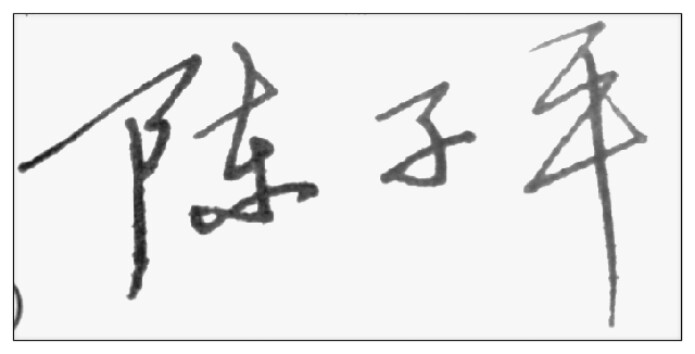 陈子平